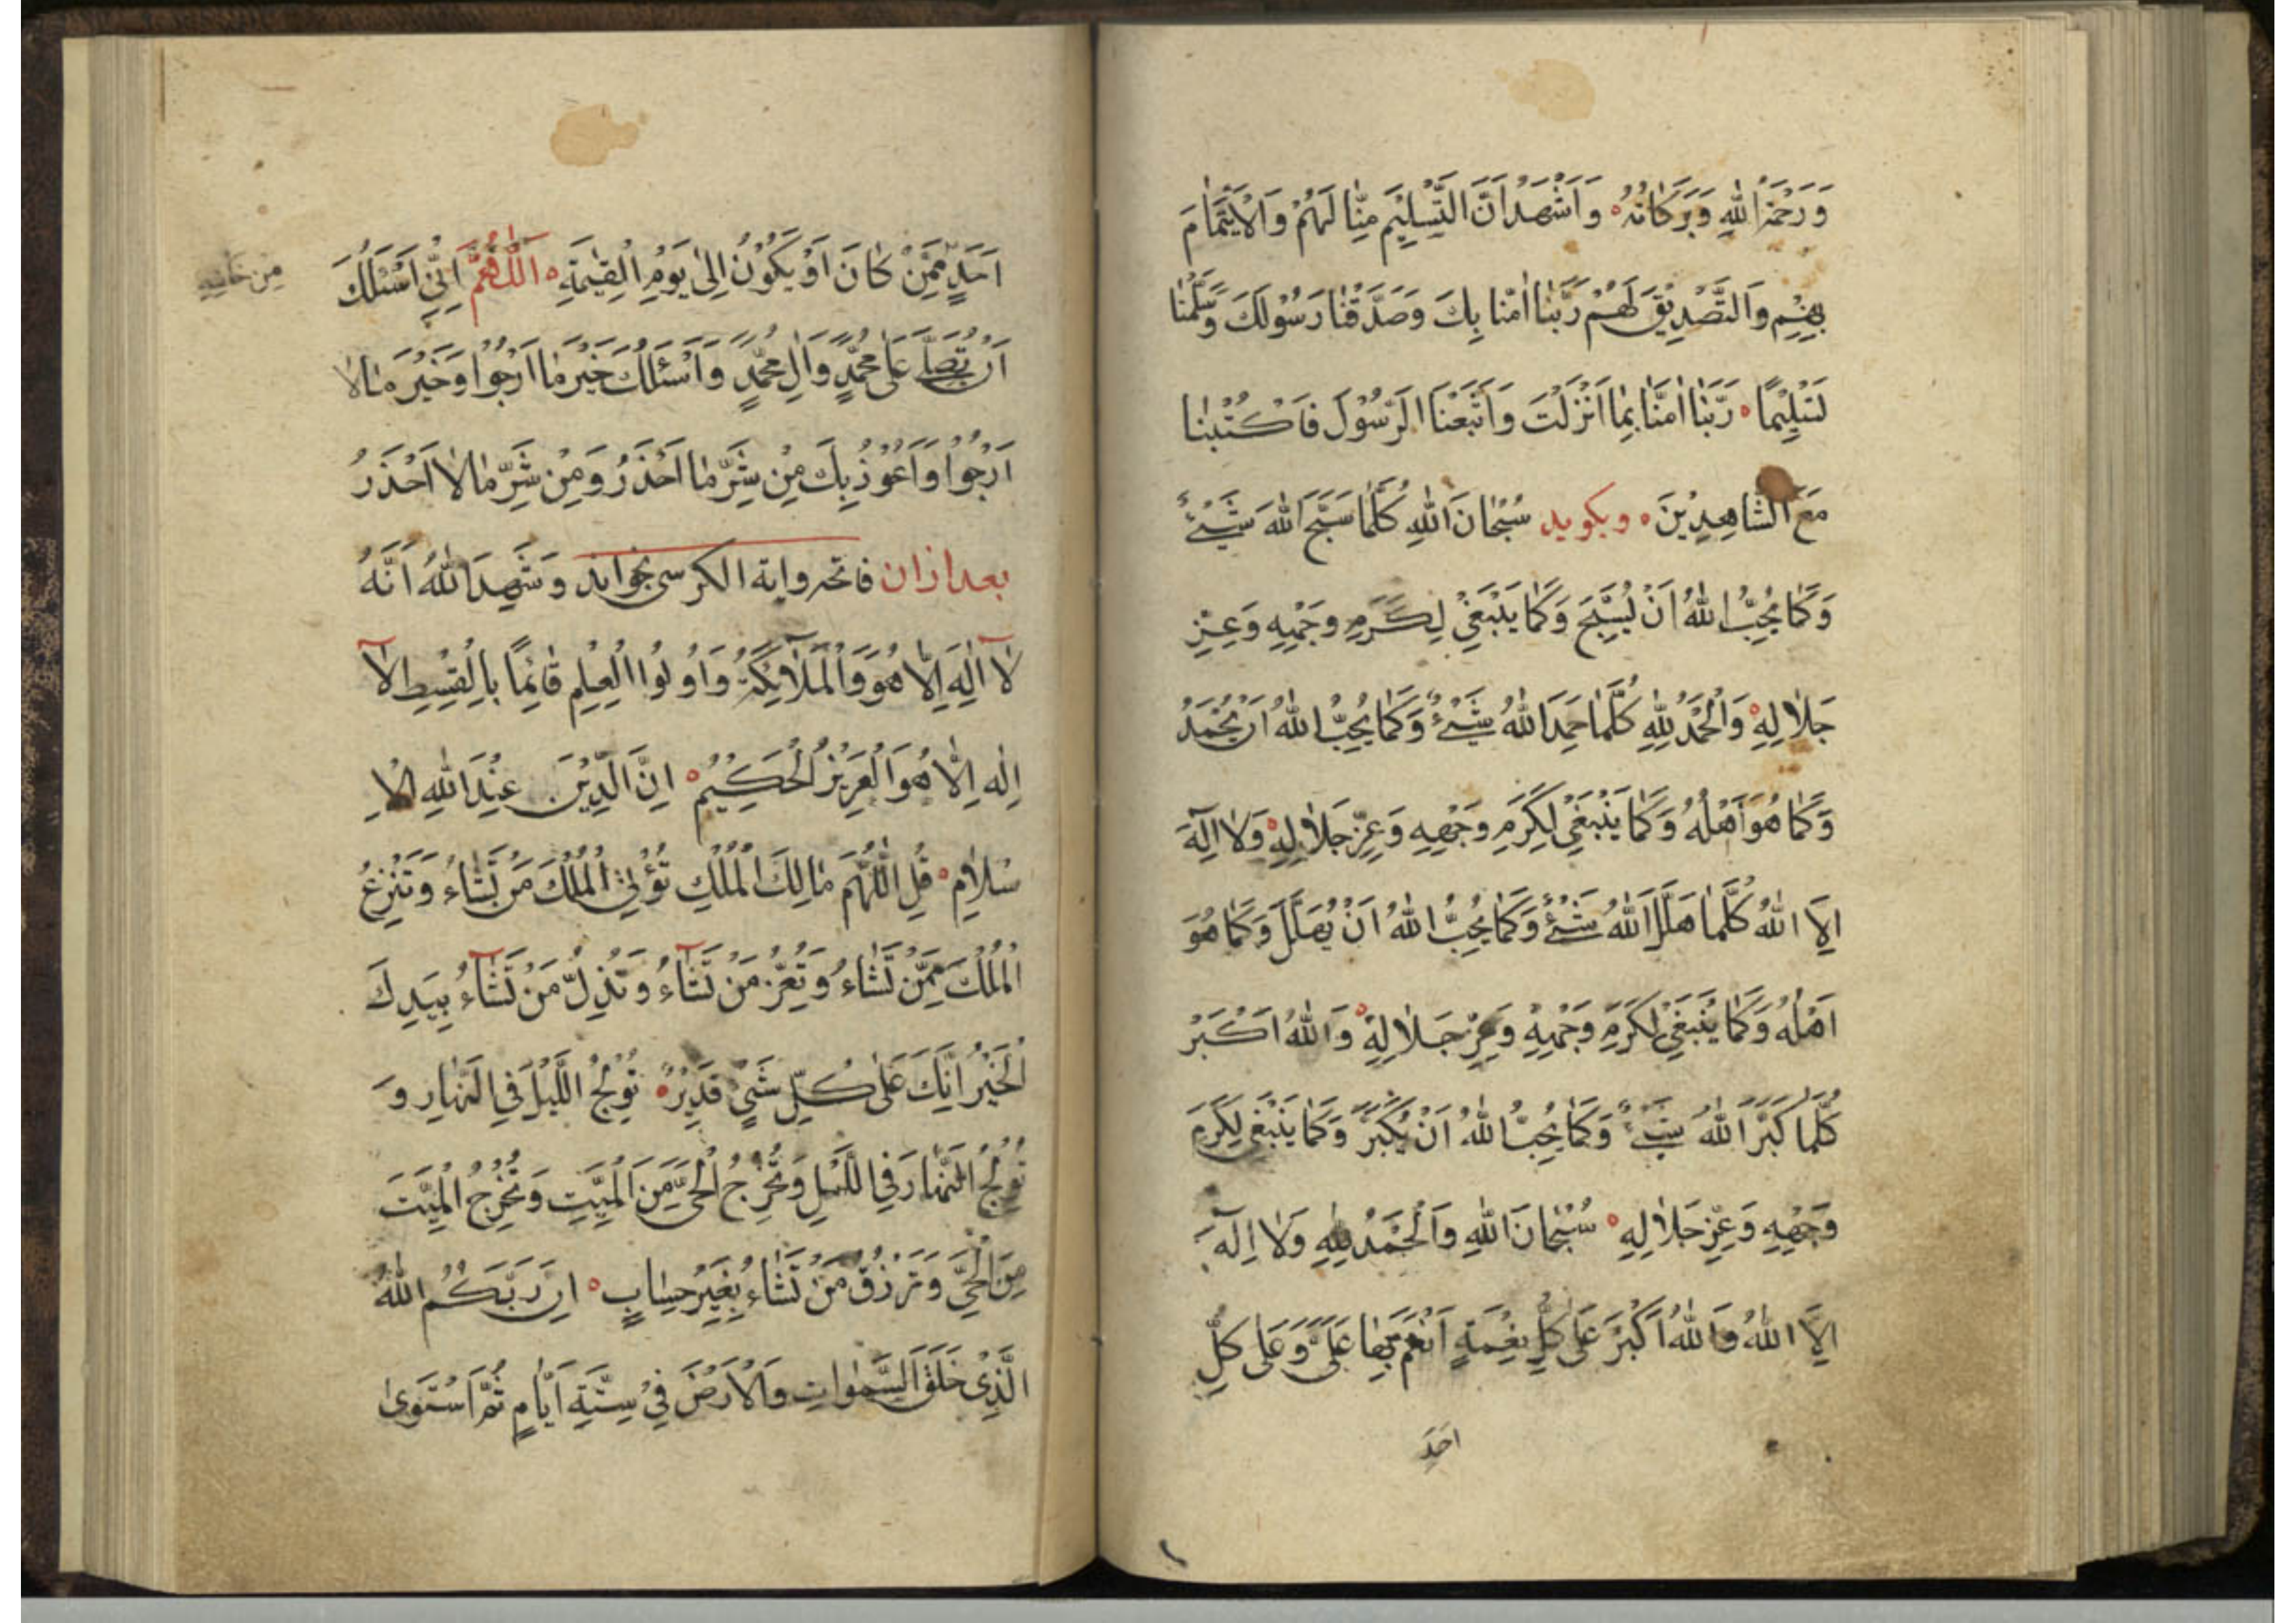 وَرَحْمَةُ اللهِ وَبَرَكَاتُهُ ۰ وَاَشْهَدُ اَنَّ التَّسْلِيْمَ مِنَّا لَهُمْ وَالْاِيْتِمَامَ
بِهِمْ وَالتَّصْدِيْقَ لَهُمْ رَبَّنَا اٰمَنَّا بِكَ وَصَدَّقْنَا رَسُوْلَكَ وَسَلَّمْنَا
تَسْلِيْمًا ۰ رَبَّنَا اٰمَنَّا بِمَا اَنْزَلْتَ وَاتَّبَعْنَا الرَّسُوْلَ فَاكْتُبْنَا
مَعَ الشَّاهِدِيْنَ ۰ وبكويد سُبْحَانَ اللهِ كُلَّمَا سَبَّحَ اللهَ شَيْءٌ
وَكَمَا يُحِبُّ اللهُ اَنْ يُسَبَّحَ وَكَمَا يَنْبَغِيْ لِكَرَمِ وَجْهِهِ وَعِزِّ
جَلَالِهِ ۰ وَالْحَمْدُ لِلّٰهِ كُلَّمَا حَمِدَ اللهَ شَيْءٌ وَكَمَا يُحِبُّ اللهُ اَنْ يُحْمَدَ
وَكَمَا هُوَ اَهْلُهُ وَكَمَا يَنْبَغِيْ لِكَرَمِ وَجْهِهِ وَعِزِّ جَلَالِهِ ۰ وَلَا اِلٰهَ
اِلَّا اللهُ كُلَّمَا هَلَّلَ اللهَ شَيْءٌ وَكَمَا يُحِبُّ اللهُ اَنْ يُهَلَّلَ وَكَمَا هُوَ
اَهْلُهُ وَكَمَا يَنْبَغِيْ لِكَرَمِ وَجْهِهِ وَعِزِّ جَلَالِهِ ۰ وَاللهُ اَكْبَرُ
كُلَّمَا كَبَّرَ اللهَ شَيْءٌ وَكَمَا يُحِبُّ اللهُ اَنْ يُكَبَّرَ وَكَمَا يَنْبَغِيْ لِكَرَمِ
وَجْهِهِ وَعِزِّ جَلَالِهِ ۰ سُبْحَانَ اللهِ وَالْحَمْدُ لِلّٰهِ وَلَا اِلٰهَ
اِلَّا اللهُ وَاللهُ اَكْبَرُ عَلٰى كُلِّ نِعْمَةٍ اَنْعَمَ بِهَا عَلَيَّ وَعَلٰى كُلِّ
احَدٍ
اَحَدٍ مِمَّنْ كَانَ اَوْ يَكُوْنُ اِلٰى يَوْمِ الْقِيٰمَةِ ۰ اَللّٰهُمَّ اِنِّيْ اَسْئَلُكَ
اَنْ تُصَلِّيَ عَلٰى مُحَمَّدٍ وَاٰلِ مُحَمَّدٍ وَاَسْئَلُكَ خَيْرَ مَا اَرْجُوْا وَخَيْرَ مَا لَا
اَرْجُوْا وَاَعُوْذُ بِكَ مِنْ شَرِّ مَا اَحْذَرُ وَمِنْ شَرِّ مَا لَا اَحْذَرُ
بعد ازان فاتحه واية الكرسى بخواند وَشَهِدَ اللهُ اَنَّهُ
لَا اِلٰهَ اِلَّا هُوَ وَالْمَلَآئِكَةُ وَاُولُوا الْعِلْمِ قَائِمًا بِالْقِسْطِ لَا
اِلٰهَ اِلَّا هُوَ الْعَزِيْزُ الْحَكِيْمُ ۰ اِنَّ الدِّيْنَ عِنْدَ اللهِ الْاِ
سْلَامِ ۰ قُلِ اللّٰهُمَّ مَالِكَ الْمُلْكِ تُؤْتِي الْمُلْكَ مَنْ تَشَاءُ وَتَنْزِعُ
الْمُلْكَ مِمَّنْ تَشَاءُ وَتُعِزُّ مَنْ تَشَآءُ وَتُذِلُّ مَنْ تَشَآءُ بِيَدِكَ
الْخَيْرُ اِنَّكَ عَلٰى كُلِّ شَيْءٍ قَدِيْرٌ ۰ تُوْلِجُ اللَّيْلَ فِي النَّهَارِ وَ
تُوْلِجُ النَّهَارَ فِي اللَّيْلِ وَتُخْرِجُ الْحَيَّ مِنَ الْمَيِّتِ وَتُخْرِجُ الْمَيِّتَ
مِنَ الْحَيِّ وَتَرْزُقُ مَنْ تَشَاءُ بِغَيْرِ حِسَابٍ ۰ اِنَّ رَبَّكُمُ اللهُ
الَّذِيْ خَلَقَ السَّمٰوَاتِ وَالْاَرْضَ فِيْ سِتَّةِ اَيَّامٍ ثُمَّ اسْتَوٰى